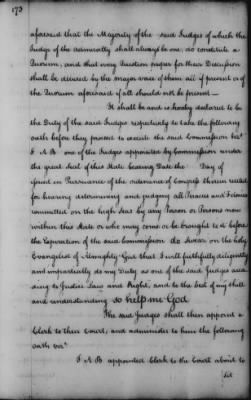 173
aforesaid that the Majority of the said Judges of which the
Judge of the admiralty shall always be one, do constitute a
Quorum, and that every Question proper for their Decission
shall be decided by the major voice of them all if present or of
the Quorum aforesaid if all should not be present —
It shall be and is hereby declared to be
the Duty of the said Judges respectively to take the following
oath before they proceed to execute the said Commission vizt
I A B one of the Judges appointed by Commission under
the great Seal of this State bearing Date the Day of
issued in Pursuance of the ordinance of Congress therein recited
for hearing determining and judging all Piracies and Felonies
committed on the high Seas by any Person or Persons now
within this State or who may come or be brought to it before
the Expiration of the said Commission do Swear on the holy
Evangelist of Almighty God that I will faithfully diligently
and impartially do my Duty as one of the said Judges accor
ding to Justice Law and Right, and to the best of my skill
and understanding so help me God
The said Judges shall then appoint a
Clerk to their Court, and administer to him the following
oath vizt
I A B appointed Clerk to the Court about to